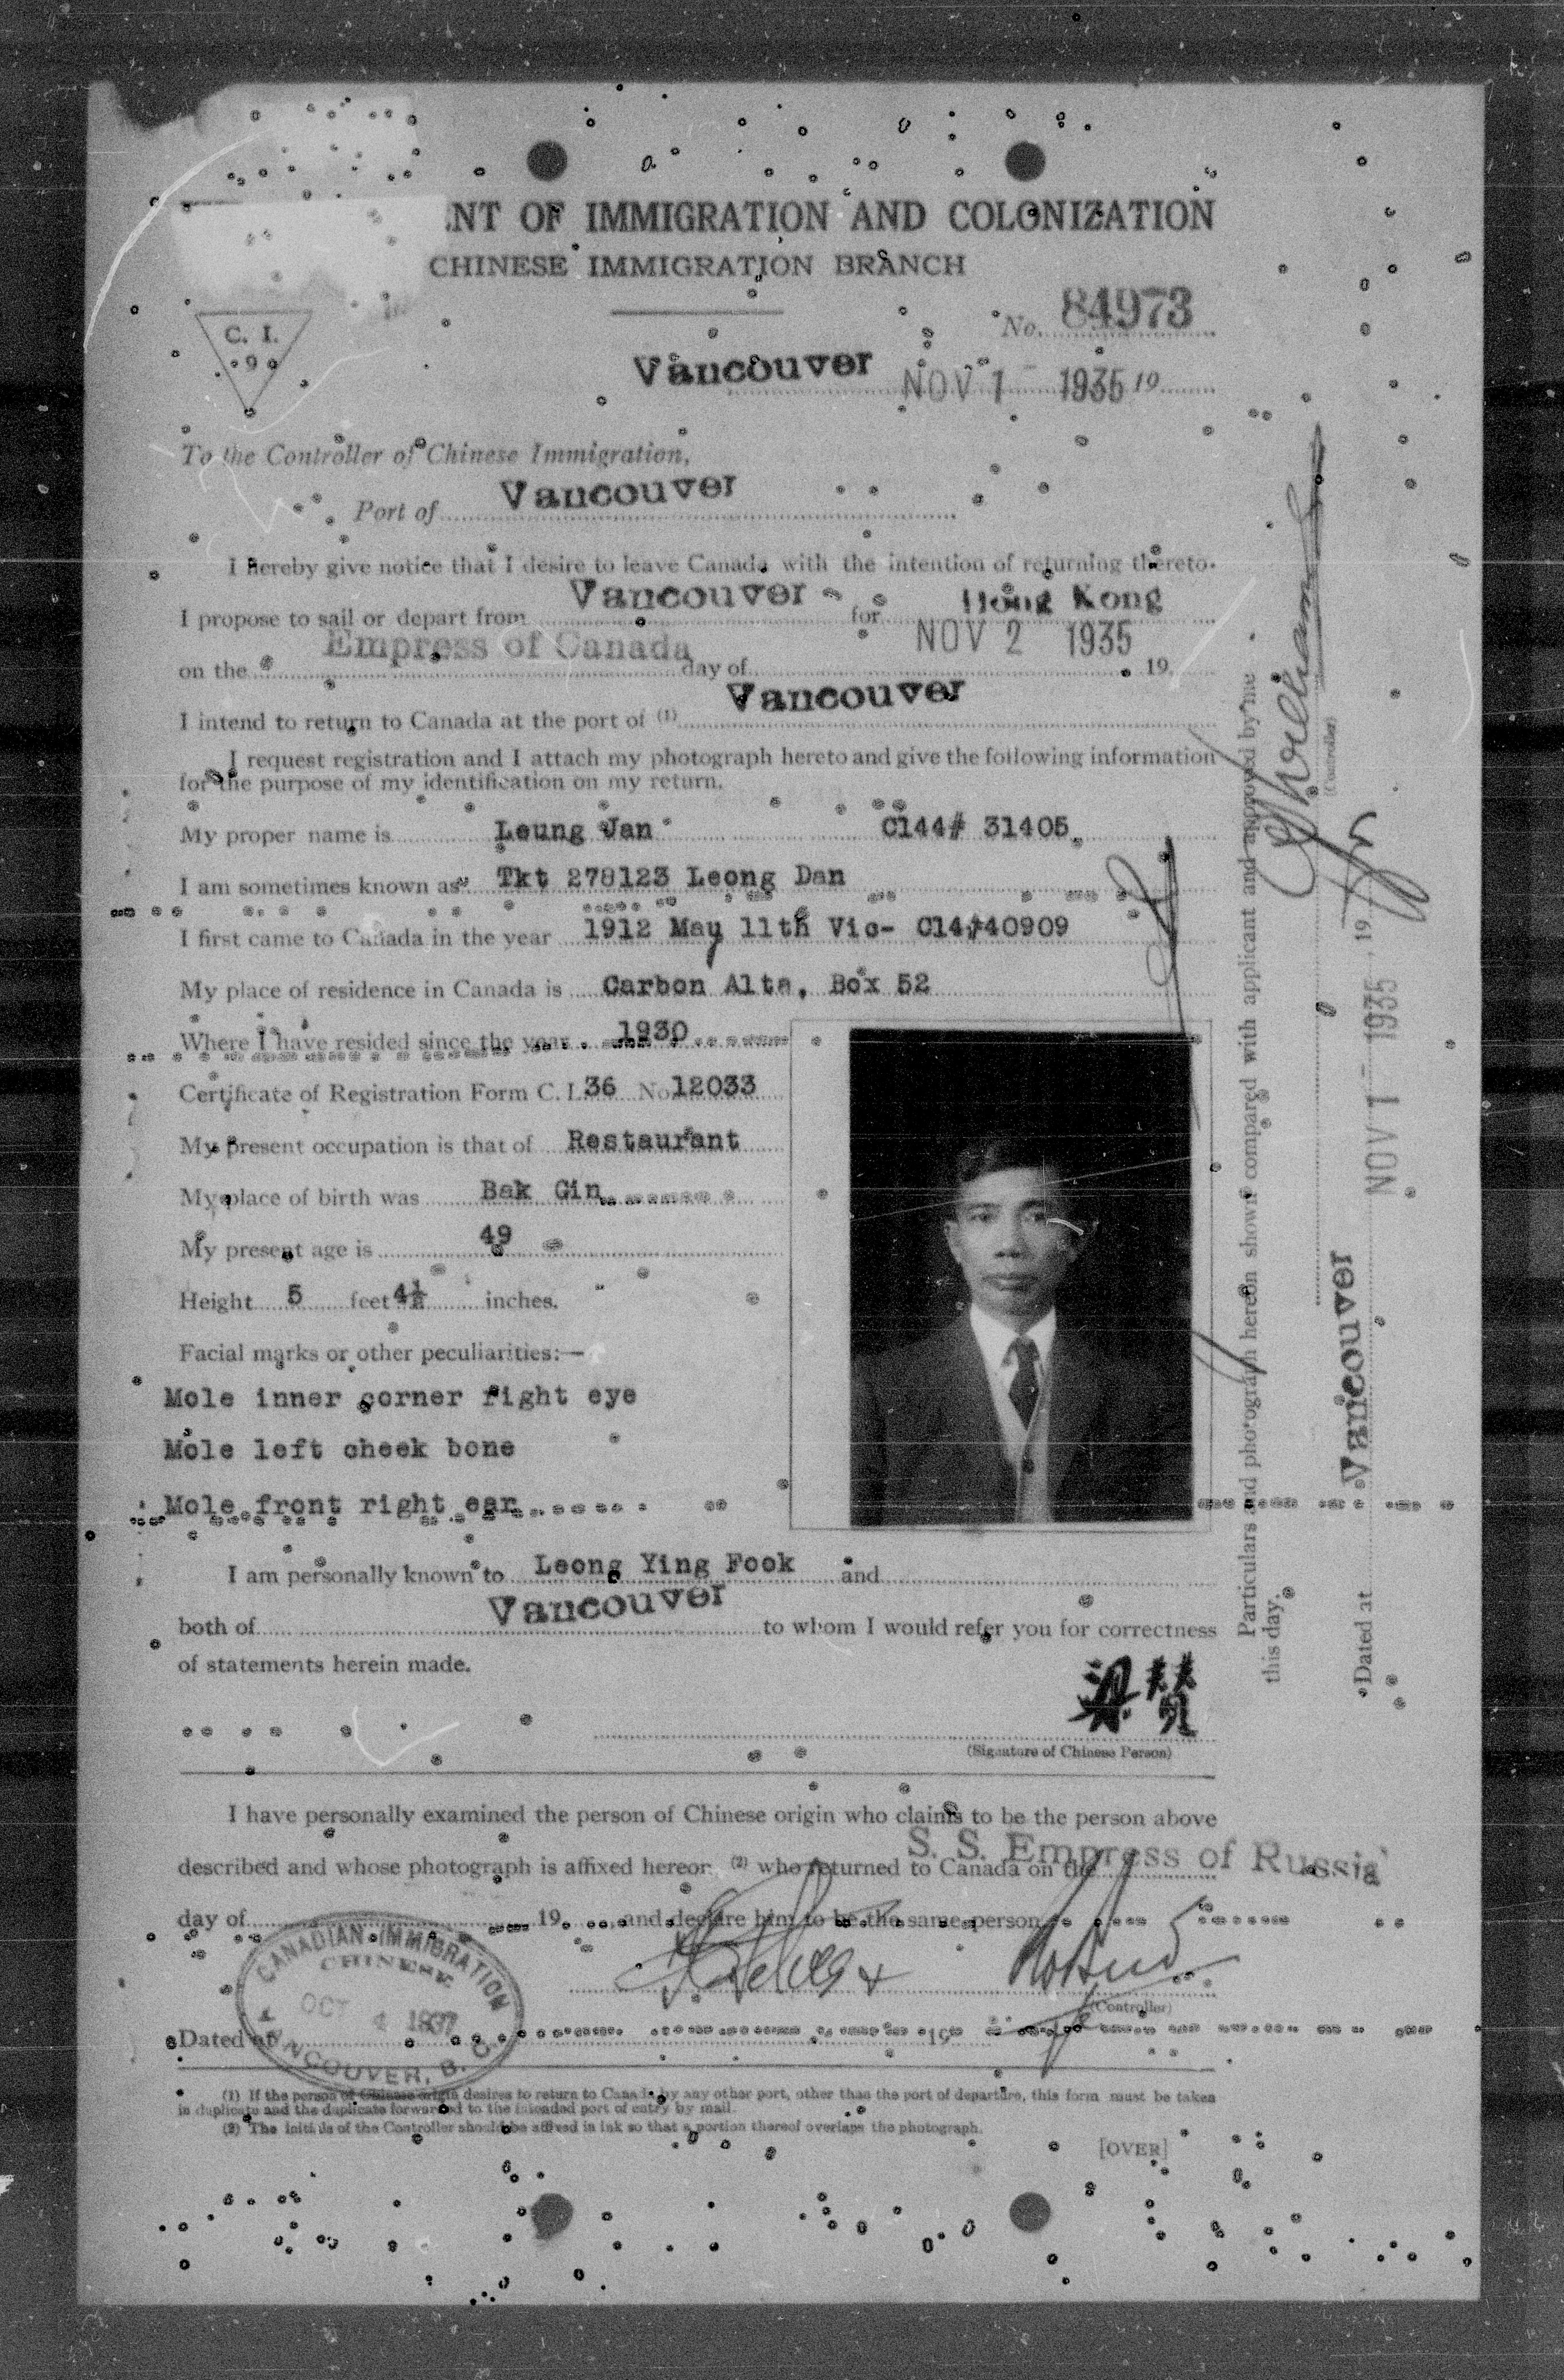 NT OF IMMIGRATION AND COLONIZATION
CHINESE IMMIGRATION BRANCH
C. I.
9
No. 84973
Vancouver NOV 1 - 1935 19
To the Controller of Chinese Immigration,
Port of Vancouver
I hereby give notice that I desire to leave Canada with the intention of returning thereto.
I propose to sail or depart from Vancouver for Hong Kong
on the Empress of Canada day of NOV 2 1935 19
I intend to return to Canada at the port of (1) Vancouver
I request registration and I attach my photograph hereto and give the following information
for the purpose of my identification on my return.
My proper name is Leung Jan C144# 31405
I am sometimes known as Tkt 278123 Leong Dan
I first came to Canada in the year 1912 May 11th Vic- C14#40909
My place of residence in Canada is Carbon Alta, Box 52
Where I have resided since the year 1930
Certificate of Registration Form C. I. 36 No 12033
My present occupation is that of Restaurant
My place of birth was Bak Gin
My present age is 49
Height 5 feet 4½ inches.
Facial marks or other peculiarities:—
Mole inner corner right eye
Mole left cheek bone
Mole front right ear
I am personally known to Leong Ying Fook and
both of Vancouver to whom I would refer you for correctness
of statements herein made.
梁賛
(Signature of Chinese Person)
I have personally examined the person of Chinese origin who claims to be the person above
described and whose photograph is affixed hereon (2) who returned to Canada on the S. S. Empress of Russia
day of 19 and declare him to be the same person
(Controller)
Dated at 19
CANADIAN IMMIGRATION
CHINESE
OCT 4 1937
VANCOUVER, B. C.
(1) If the person of Chinese origin desires to return to Canada by any other port, other than the port of departure, this form must be taken
in duplicate and the duplicate forwarded to the intended port of entry by mail.
(2) The initials of the Controller should be affixed in ink so that a portion thereof overlaps the photograph.
[OVER]
Particulars and photograph hereon shown compared with applicant and approved by me
this day.
(Controller)
Dated at Vancouver NOV 1 - 1935 19